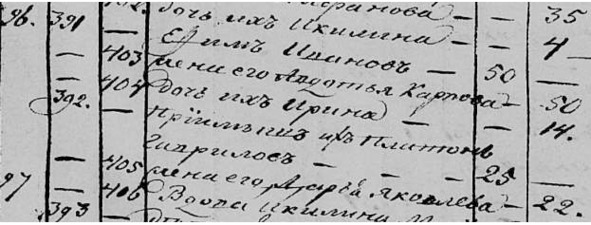 402. — 35
96. 391 — дочь ихъ Акилина — — 4
— 403 Ефимъ Ивановъ — 50 —
— 404 жена его Авдотья Карпова — 50
392. — дочь ихъ Ирина — — 14.
Пріимышъ ихъ Платонъ
— 405 Гавриловъ — — — 25 —
97 — 406 жена его Дарья Яковлева — 22.
393 — Вдова Акилина